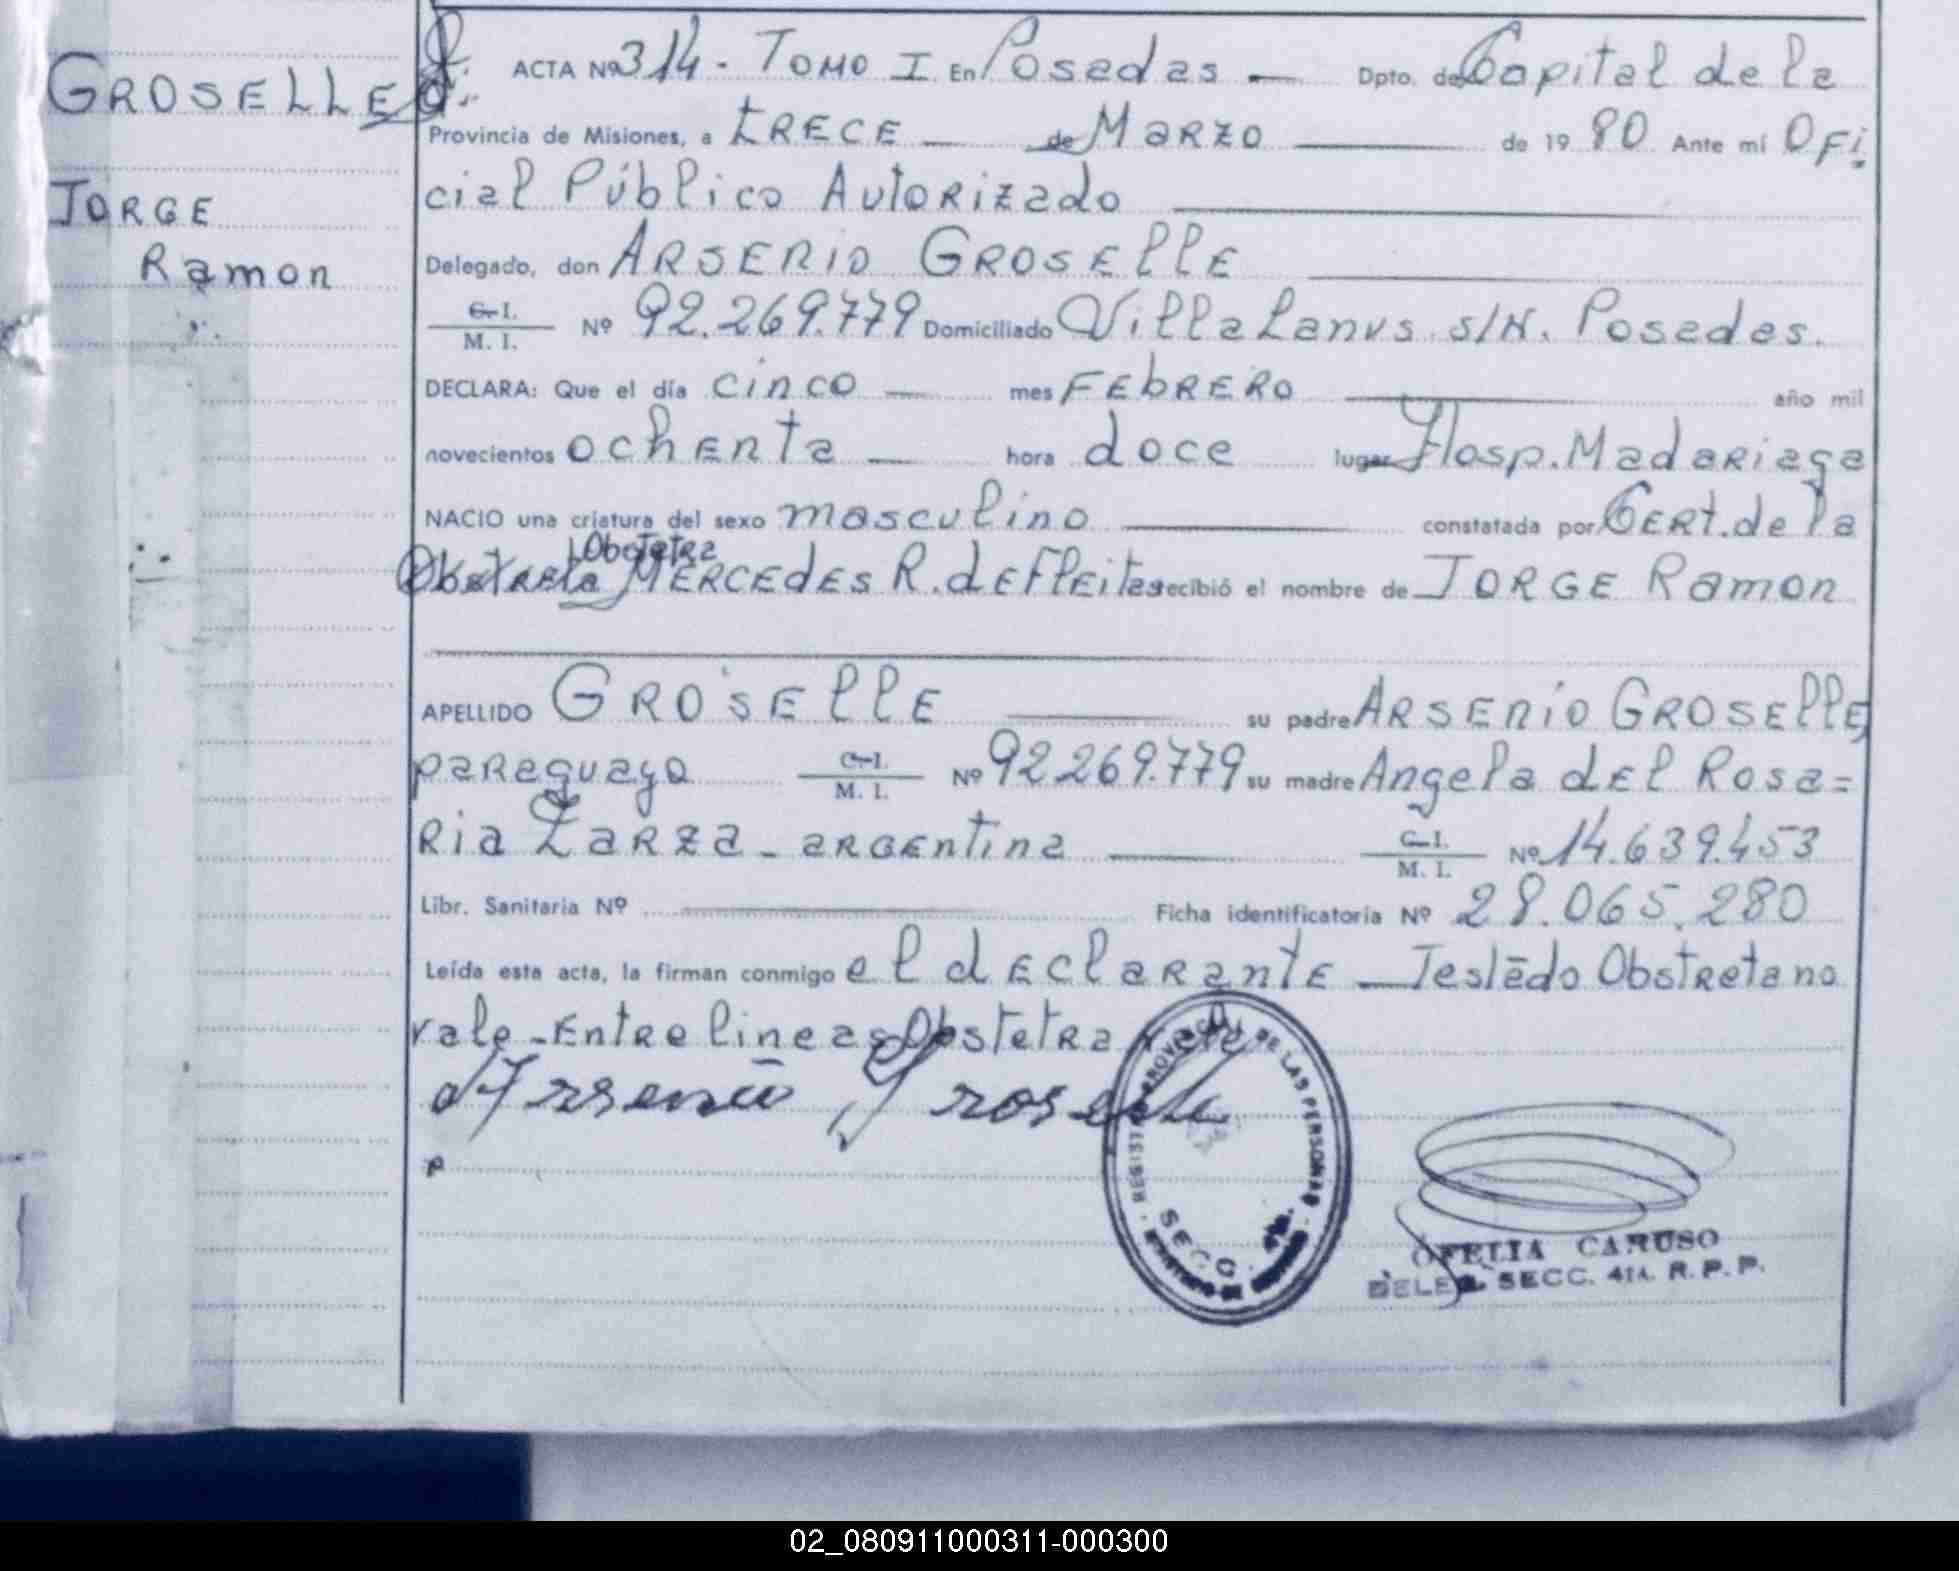 GROSELLE
JORGE
Ramon
ACTA Nº 314 - TOMO I. En Posadas — Dpto. de Capital de la
Provincia de Misiones, a trece — de Marzo — de 1980 Ante mí Ofi
cial Público Autorizado
Delegado, don ARSENIO GROSELLE
C. I.
M. I. Nº 92.269.779 Domiciliado Villa Lanus s/N. Posadas.
DECLARA: Que el día cinco — mes FEBRERO — año mil
novecientos ochenta — hora doce lugar Hosp. Madariaga
NACIO una criatura del sexo masculino — constatada por Cert. de la
Obstetra
Obstreta MERCEDES R. de Fleitas recibió el nombre de JORGE Ramon
APELLIDO GROSELLE — su padre ARSENIO GROSELLE,
paraguayo C. I. M. I. Nº 92.269.779 su madre Angela del Rosa=
Ria Zarza - argentina — C. I. M. I. Nº 14.639.453
Libr. Sanitaria Nº — Ficha identificatoria Nº 28.065.280
Leída esta acta, la firman conmigo el declarante — Testado Obstreta no
vale - Entre lineas Obstetra vale
Arsenio Groselle
REGISTRO PROVINCIAL DE LAS PERSONAS
SECC. 4ta.
OFELIA CARUSO
DELEG. SECC. 4ta. R.P.P.
02_080911000311-000300